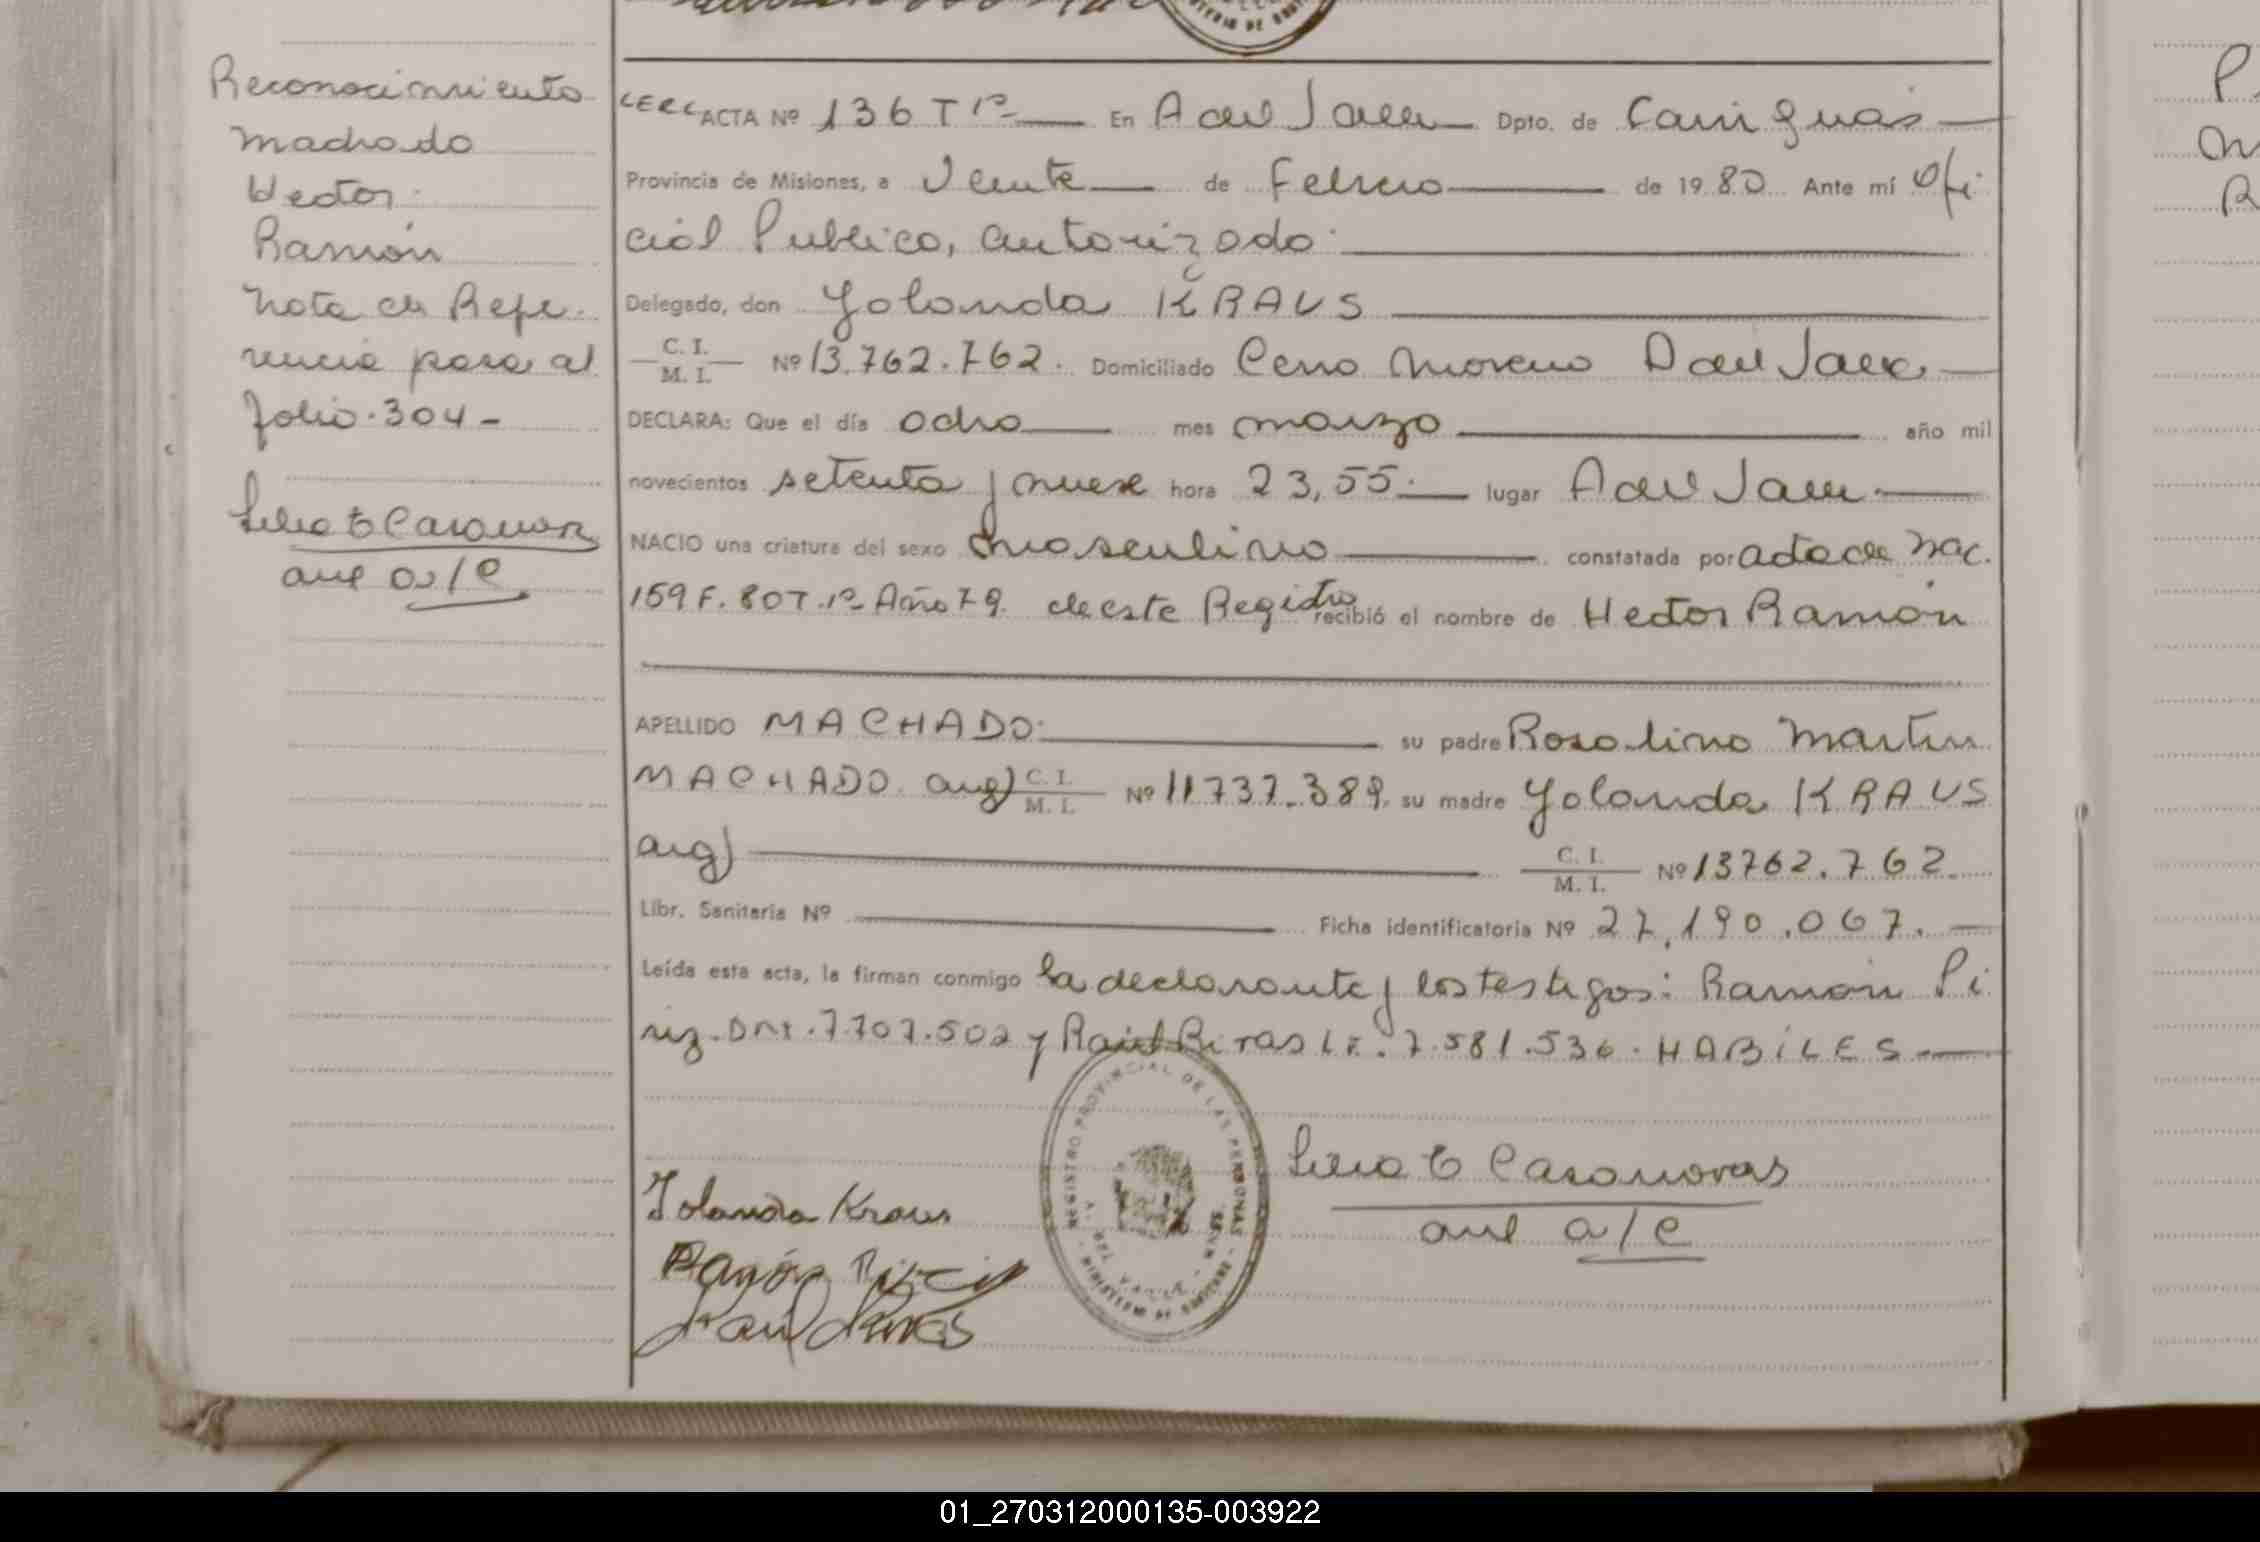 Reconocimiento
Machado
Hector
Ramón
Nota de Refe-
rencia pasa al
folio 304-
a/c
ACTA Nº 136 Tº 1º En A del Valle Dpto. de Cainguás
Provincia de Misiones, a Veinte de Febrero de 1980 Ante mí Ofi
cial Publico, autorizado
Delegado, don Yolanda KRAUS
C. I.
M. I. Nº 13.762.762. Domiciliado Cerro Moreno A del Valle
DECLARA: Que el día ocho mes marzo año mil
novecientos setenta y nueve hora 23,55. lugar A del Valle
NACIO una criatura del sexo masculino constatada por acta de Nac.
159 F. 80 T. 1º Año 79. de este Registro recibió el nombre de Hector Ramón
APELLIDO MACHADO su padre Rosolino Martin
MACHADO arg) C. I. M. I. Nº 11.737.389. su madre Yolanda KRAUS
arg) C. I. M. I. Nº 13762.762
Libr. Sanitaria Nº Ficha identificatoria Nº 27.190.067.
Leída esta acta, la firman conmigo la declarante y los testigos: Ramón Pi
riz. DNI. 7.707.502 y Raúl Rivas L.E. 7.581.536. HABILES
REGISTRO PROVINCIAL DE LAS PERSONAS
Yolanda Kraus
Casanovas
a/c
Ramón Piriz
Raúl Rivas
01_270312000135-003922